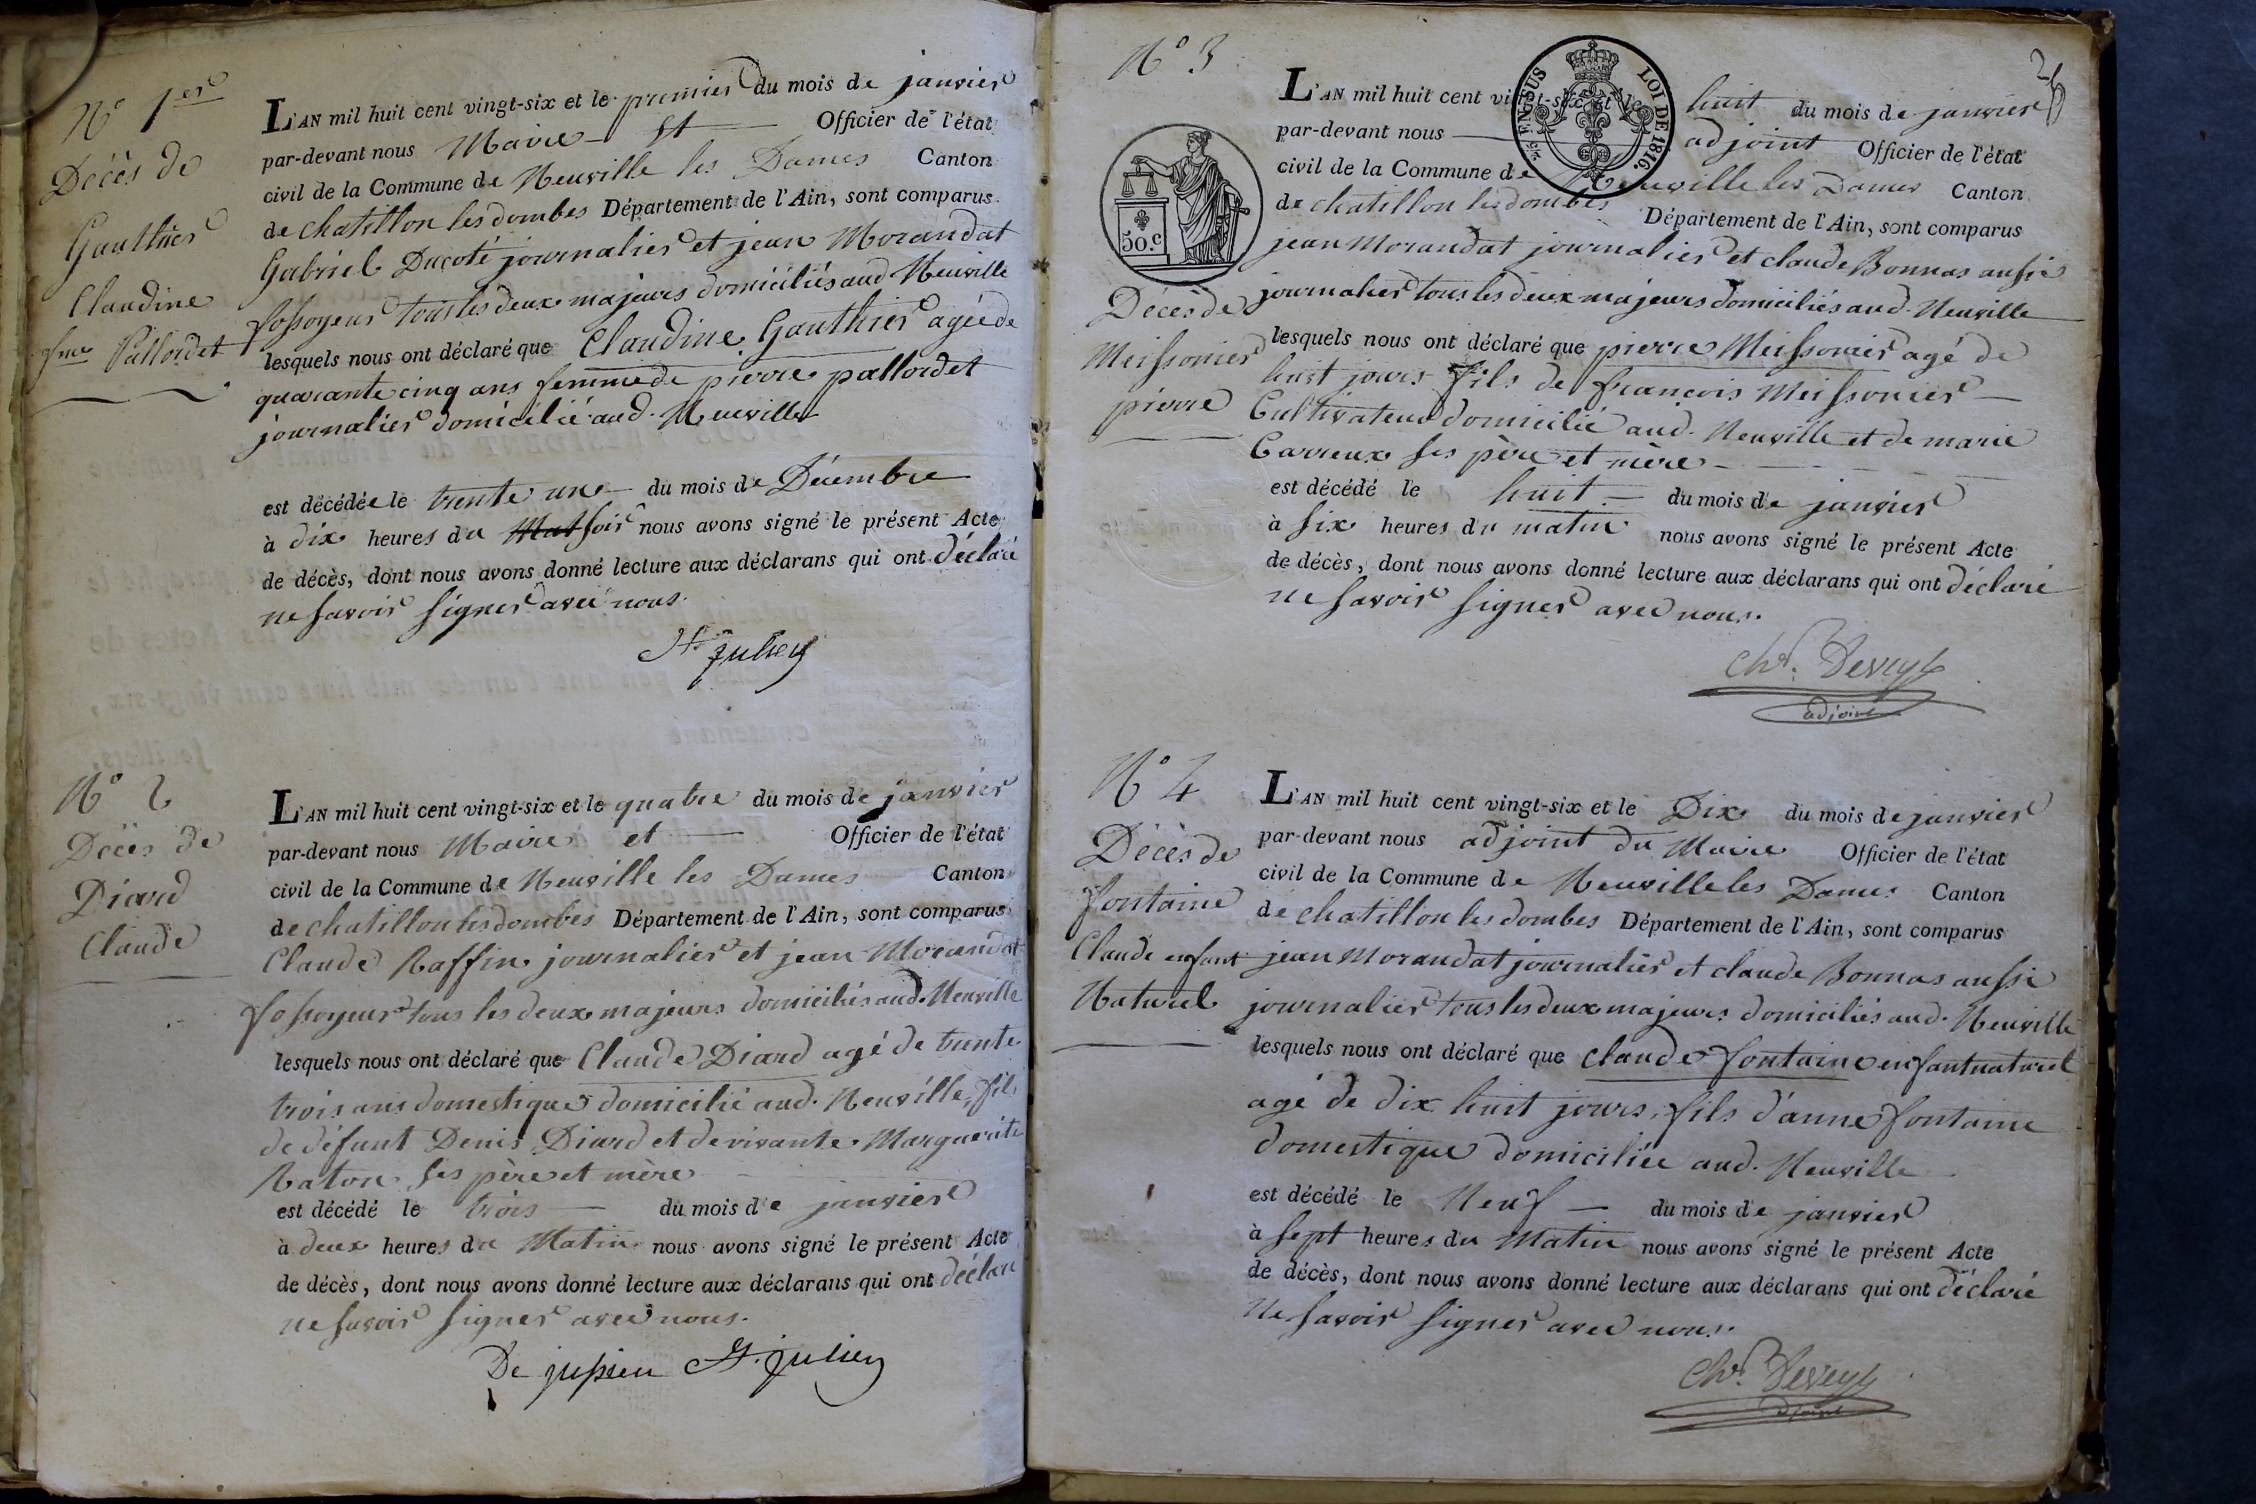 N° 1er
Décès de
Gauthier
Claudine
fme Pallordet
L'AN mil huit cent vingt-six et le premier du mois de janvier
par-devant nous Maire et Officier de l'état
civil de la Commune de Neuville les Dames Canton
de chatillon les dombes Département de l'Ain, sont comparus
Gabriel Ducoté journalier et jean Morandat
fossoyeur tous les deux majeurs domiciliés aud Neuville
lesquels nous ont déclaré que Claudine Gauthier agée de
quarante cinq ans femme de pierre pallordet
journalier domicilié aud. Neuville
est décédée le trente une du mois de Décembre
à dix heures du Mat soir nous avons signé le présent Acte
de décès, dont nous avons donné lecture aux déclarans qui ont déclaré
ne savoir signer avec nous.
St julien
N° 2
Décès de
Diard
Claude
L'AN mil huit cent vingt-six et le quatre du mois de janvier
par-devant nous Maire et Officier de l'état
civil de la Commune de Neuville les Dames Canton
de chatillon les dombes Département de l'Ain, sont comparus
Claude Raffin journalier et jean Morandat
fossoyeur tous les deux majeurs domiciliés aud. Neuville
lesquels nous ont déclaré que Claude Diard agé de trente
trois ans domestique domicilié aud. Neuville, fils
de défunt Denis Diard et de vivante Marguerite
Raton ses père et mère
est décédé le trois du mois de janvier
à deux heures du Matin nous avons signé le présent Acte
de décès, dont nous avons donné lecture aux déclarans qui ont déclaré
ne savoir signer avec nous.
De jussieu St. julien
N° 3
EN SUS
LOI DE 1816.
50.c
Décès de
Meissonier
pierre
L'AN mil huit cent vingt-six et le huit du mois de janvier
par-devant nous adjoint Officier de l'état
civil de la Commune de Neuville les Dames Canton
de chatillon les dombes Département de l'Ain, sont comparus
jean Morandat journalier et claude Bonnas aussi
journalier tous les deux majeurs domiciliés aud. Neuville
lesquels nous ont déclaré que pierre Meissonier agé de
huit jours fils de françois Meissonier
Cultivateur domicilié aud. Neuville et de marie
Carreux ses père et mère
est décédé le huit du mois de janvier
à six heures du matin nous avons signé le présent Acte
de décès, dont nous avons donné lecture aux déclarans qui ont déclaré
ne savoir signer avec nous.
adjoint
N° 4
Décès de
fontaine
Claude enfant
Naturel
L'AN mil huit cent vingt-six et le Dix du mois de janvier
par-devant nous adjoint du Maire Officier de l'état
civil de la Commune de Neuville les Dames Canton
de chatillon les dombes Département de l'Ain, sont comparus
jean Morandat journalier et claude Bonnas aussi
journalier tous les deux majeurs domiciliés aud. Neuville
lesquels nous ont déclaré que claude fontaine enfant naturel
agé de dix huit jours, fils d'anne fontaine
domestique domiciliée aud. Neuville
est décédé le Neuf du mois de janvier
à sept heures du Matin nous avons signé le présent Acte
de décès, dont nous avons donné lecture aux déclarans qui ont déclaré
ne savoir signer avec nous.
adjoint